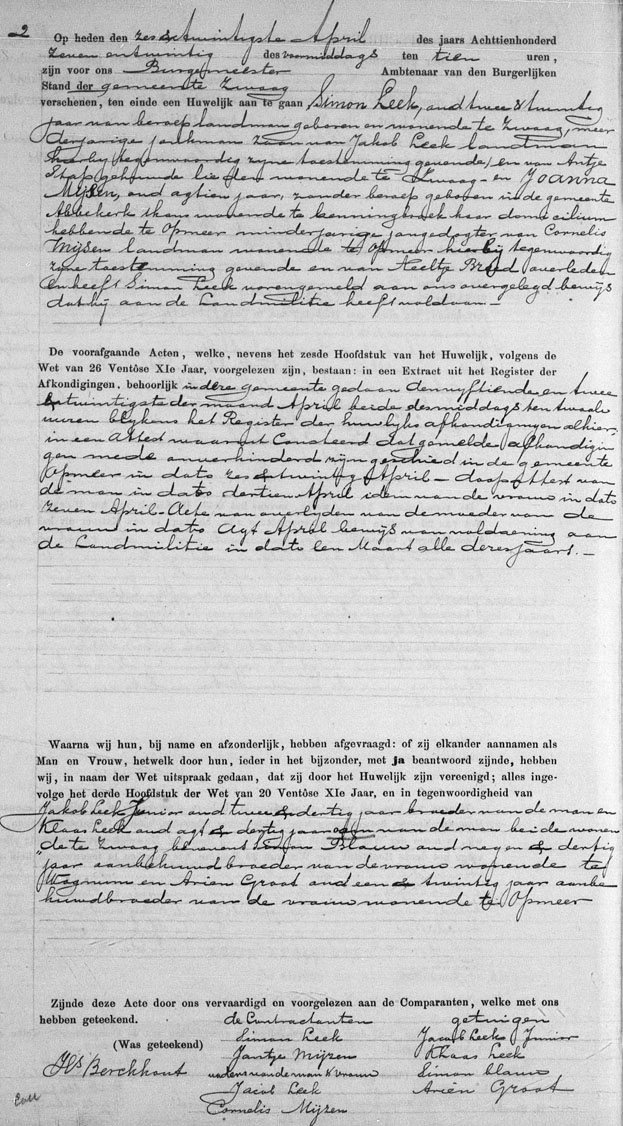 2
Op heden den zes & twintigste April des jaars Achttienhonderd
zeven en twintig des voormiddags ten tien uren,
zijn voor ons Burgemeester Ambtenaar van den Burgerlijken
Stand der gemeente Zwaag
verschenen, ten einde een Huwelijk aan te gaan Simon Leek, oud twee & twintig
jaar van beroep landman geboren en wonende te Zwaag, meer
derjarige jonkman zoon van Jakob Leek landman
hierbij tegenwoordig zyne toestemming gevende, en van Antje
Stap gehuwde lieden wonende te Zwaag - en Joanna
Mijsen, oud agtien jaar, zonder beroep geboren in de gemeente
Abbekerk thans wonende te Benningbroek haar domicilium
hebbende te Opmeer minderjarige jongedogter van Cornelis
Mijsen landman wonende te Opmeer hierbij tegenwoordig
zyne toestemming gevende en van Neeltje Breed overleden
en heeft Simon Leek vorengemeld aan ons overgelegd bewijs
dat hij aan de Landmilitie heeft voldaan -
De voorafgaande Acten, welke, nevens het zesde Hoofdstuk van het Huwelijk, volgens de
Wet van 26 Ventôse XIe Jaar, voorgelezen zijn, bestaan: in een Extract uit het Register der
Afkondigingen, behoorlijk in deze gemeente gedaan den vyftiende en twee
& twintigste der maand April beide des middags ten twaalf
uuren blykens het Register der huwlyks afkondigingen alhier,
in een Attest waaruit Consteerd dat gemelde afkondigin
gen mede onverhinderd zijn geschied in de gemeente
Opmeer in dato zes & twintig April - doop Attest van
de man in dato dertien April idem van de vrouw in dato
zeven April - Acte van overlyden van de moeder van de
vrouw in dato Agt April bewijs van voldoening aan
de Landmilitie in dato een Maart alle dezes jaars. -
Waarna wij hun, bij name en afzonderlijk, hebben afgevraagd: of zij elkander aannamen als
Man en Vrouw, hetwelk door hun, ieder in het bijzonder, met ja beantwoord zijnde, hebben
wij, in naam der Wet uitspraak gedaan, dat zij door het Huwelijk zijn vereenigd; alles inge-
volge het derde Hoofdstuk der Wet van 20 Ventôse XIe Jaar, en in tegenwoordigheid van
Jakob Leek Junior oud twee & dertig jaar broeder van de man en
Klaas Leek oud agt & dertig jaar oom van de man beide wonen
de te Zwaag benevens Simon Blauw oud negen & dertig
jaar aanbehuwdbroeder van de vrouw wonende te
Wognum en Arien Groot oud een & twintig jaar aanbe
huwdbroeder van de vrouw wonende te Opmeer
Zijnde deze Acte door ons vervaardigd en voorgelezen aan de Comparanten, welke met ons
hebben geteekend. de Contractanten getuigen
(Was geteekend) Simon Leek Jacob Leek Junior
Jantje Mijzen Klaas Leek
Hs Berckhout vaders van de man & vrouw Simon blauw
Jacob Leek Ariën Groot
Cornelis Mijzen